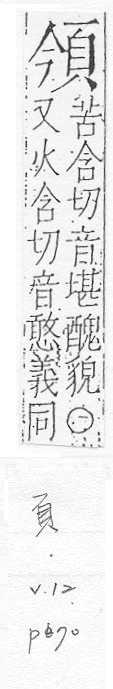 䪴
苦含切音堪醜貌○
又火含切音憨義同
頁
.
v.12
p670